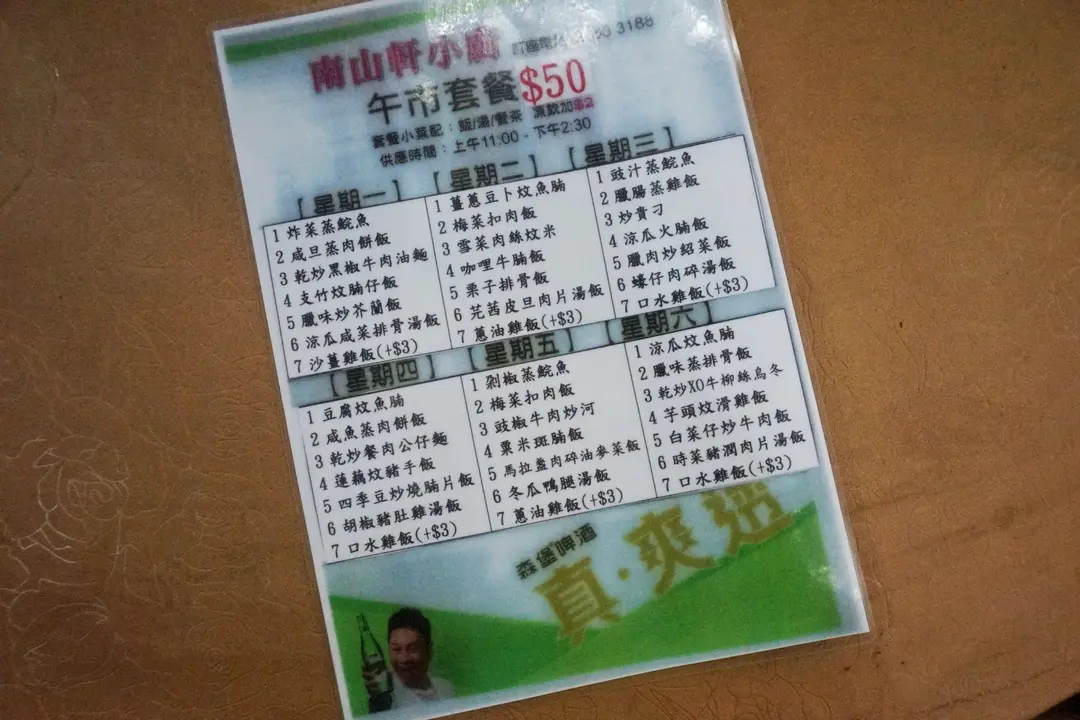 南山軒小廚
訂座電話 3188
午市套餐$50
套餐小菜配：飯/湯/餐茶 凍飲加$2
供應時間：上午11:00 - 下午2:30
【星期一】
1 炸菜蒸鯇魚
2 咸旦蒸肉餅飯
3 乾炒黑椒牛肉油麵
4 支竹炆腩仔飯
5 臘味炒芥蘭飯
6 涼瓜咸菜排骨湯飯
7 沙薑雞飯(+$3)
【星期二】
1 薑蔥豆卜炆魚腩
2 梅菜扣肉飯
3 雪菜肉絲炆米
4 咖哩牛腩飯
5 栗子排骨飯
6 芫茜皮旦肉片湯飯
7 蔥油雞飯(+$3)
【星期三】
1 豉汁蒸鯇魚
2 臘腸蒸雞飯
3 炒貴刁
4 涼瓜火腩飯
5 臘肉炒紹菜飯
6 蠔仔肉碎湯飯
7 口水雞飯(+$3)
【星期四】
1 豆腐炆魚腩
2 咸魚蒸肉餅飯
3 乾炒餐肉公仔麵
4 蓮藕炆豬手飯
5 四季豆炒燒腩片飯
6 胡椒豬肚雞湯飯
7 口水雞飯(+$3)
【星期五】
1 剁椒蒸鯇魚
2 梅菜扣肉飯
3 豉椒牛肉炒河
4 粟米斑腩飯
5 馬拉盞肉碎油麥菜飯
6 冬瓜鴨腿湯飯
7 蔥油雞飯(+$3)
【星期六】
1 涼瓜炆魚腩
2 臘味蒸排骨飯
3 乾炒XO牛柳絲烏冬
4 芋頭炆滑雞飯
5 白菜仔炒牛肉飯
6 時菜豬潤肉片湯飯
7 口水雞飯(+$3)
森堡啤酒
真·爽迎